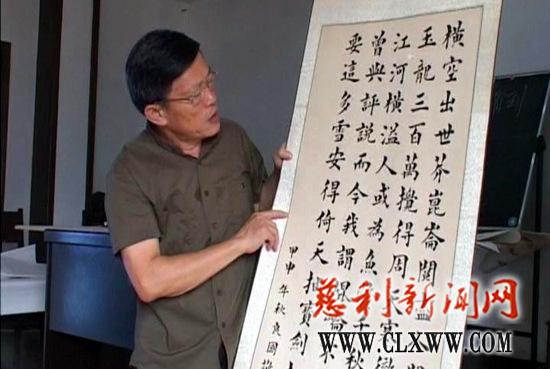 橫空出世莽崑崙閱
玉龍三百萬攪得周天寒徹
江河橫溢人或為魚千秋
曾與評說而今我謂崑崙不
要這多雪安得倚天抽寶劍
甲申年秋袁國
慈利新闻网
WWW.CLXWW.COM